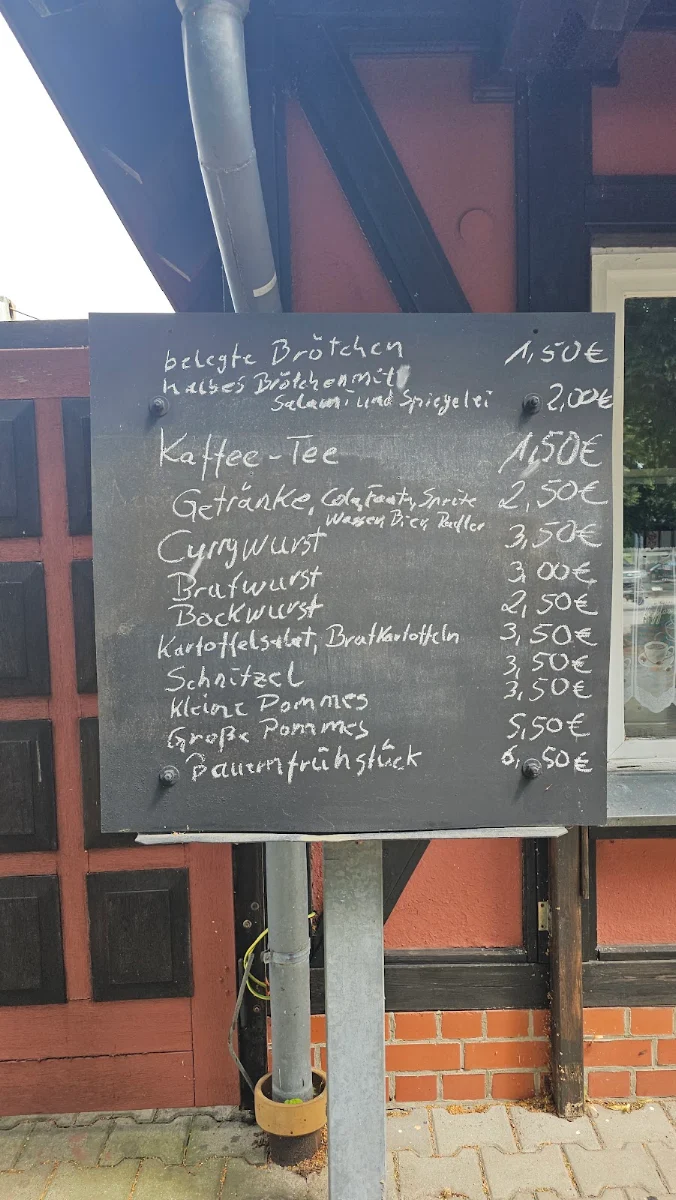 belegte Brötchen 1,50€
halbes Brötchen mit
Salami und Spiegelei 2,00€
Kaffee-Tee 1,50€
Getränke, Cola, Fanta, Sprite 2,50€
Wasser Bier Radler
Currywurst 3,50€
Bratwurst 3,00€
Bockwurst 2,50€
Kartoffelsalat, Bratkartoffeln 3,50€
Schnitzel 3,50€
Kleine Pommes 3,50€
Große Pommes 5,50€
Bauernfrühstück 6,50€